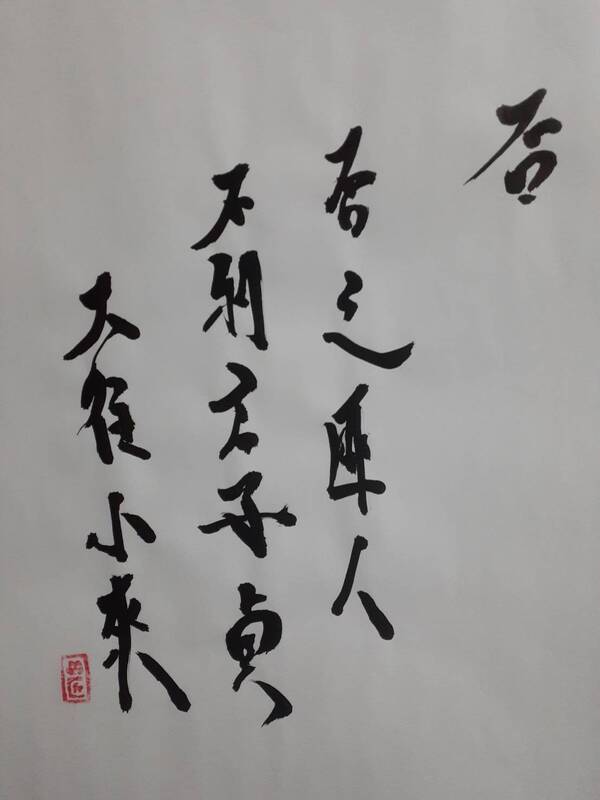 否
否之匪人
不利君子貞
大往小來